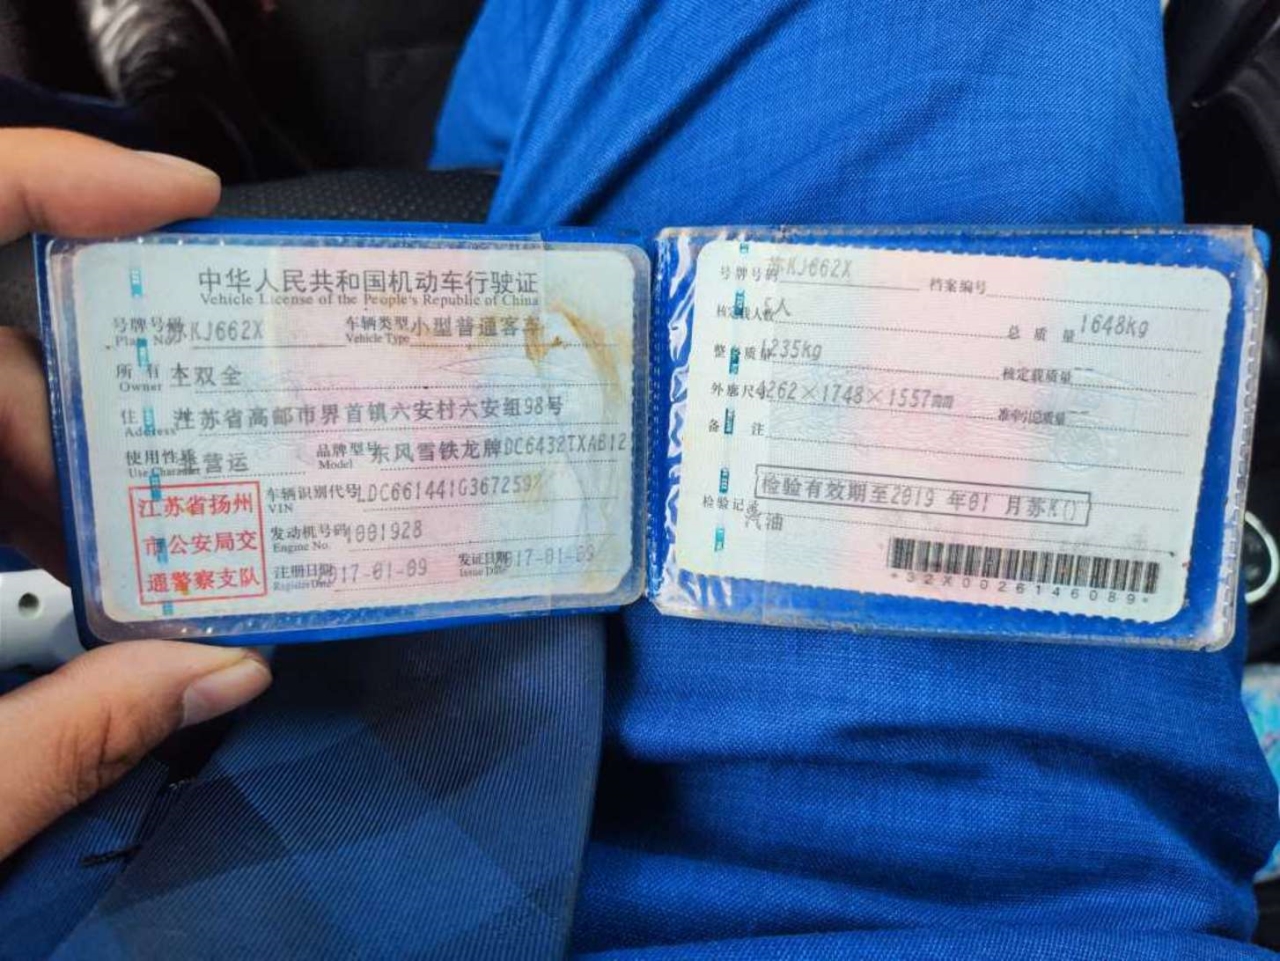 中华人民共和国机动车行驶证
Vehicle License of the People's Republic of China
号牌号码 苏KJ662X 车辆类型 小型普通客车
Plate No. Vehicle Type
所有人 双全
Owner
住址 江苏省高邮市界首镇六安村六安组98号
Address
使用性质 非营运 品牌型号 东风雪铁龙牌DC6432TXAB12
Use Character Model
江苏省扬州
市公安局交
通警察支队
车辆识别代号 LDC661441G3672597
VIN
发动机号码 1001928
Engine No.
注册日期 2017-01-09 发证日期 2017-01-09
Register Date Issue Date
号牌号码 苏KJ662X 档案编号
核定载人数 5人 总质量 1648kg
整备质量 1235kg 核定载质量
外廓尺寸 4262×1748×1557mm 准牵引总质量
备注
检验有效期至2019年01月苏K()
检验记录
汽油
*32X0026146089*